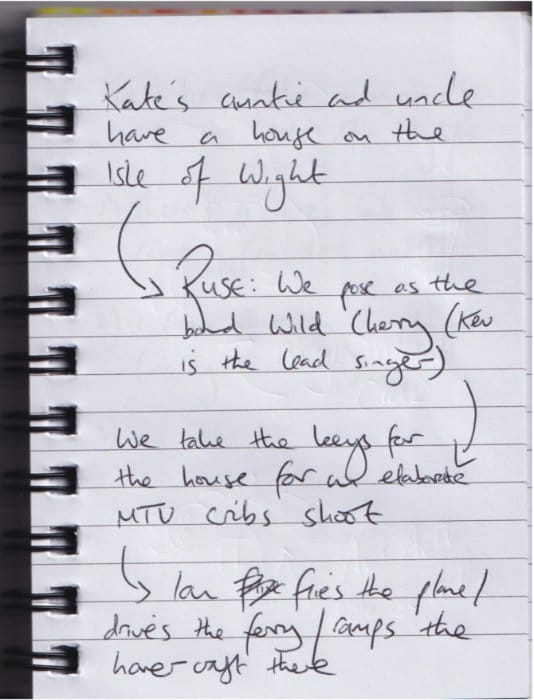 Kate's auntie ad uncle
have a house on the
Isle of Wight
Ruse: We pose as the
band Wild Cherry (Kev
is the lead singer)
We take the keys for
the house for an elaborate
MTV cribs shoot
Ian flies the plane/
drives the ferry/ramps the
hovercraft there